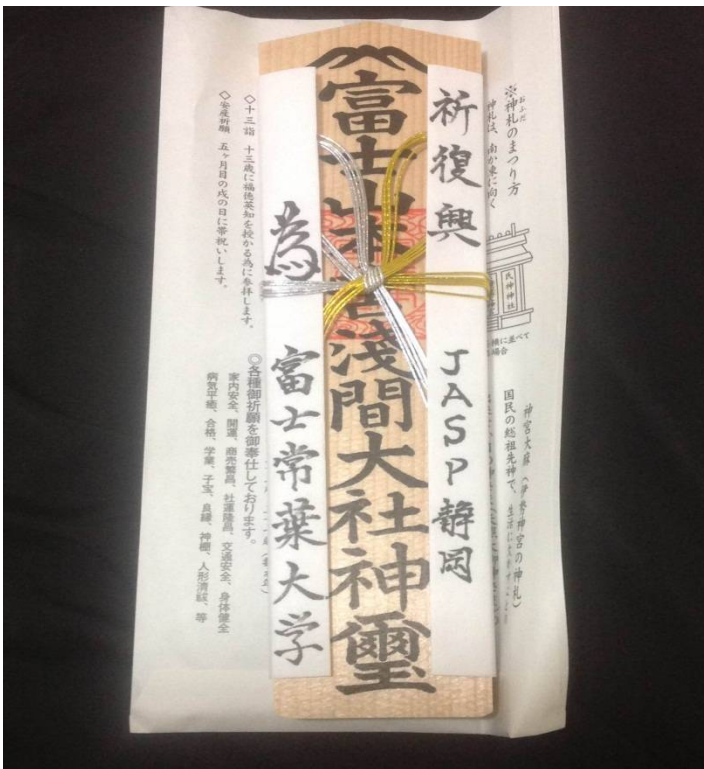 ※神札のまつり方
おふだ
神札は、南か東に向く
氏神神社
横に並べて
場合
神宮大麻（伊勢神宮の神札）
国民の総祖先神で、生活に
祈復興 JASP静岡
富士山本宮浅間大社神璽
為 富士常葉大学
◇十三詣 十三歳に福徳英知を授かる為に参拝します。
◇安産祈願 五ヶ月目の戌の日に帯祝いします。
◎各種御祈願を御奉仕しております。
家内安全、開運、商売繁昌、社運隆昌、交通安全、身体健全
病気平癒、合格、学業、子宝、良縁、神棚、人形清祓、等